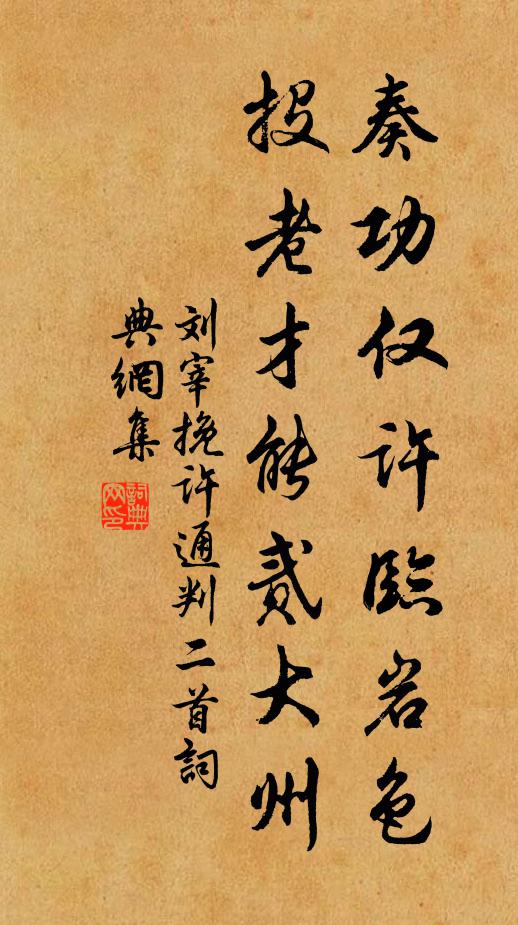 奏功仅许臨岩邑
投老才能贰大州
刘宰挽许通判二首詞
典網集
詞典
网印